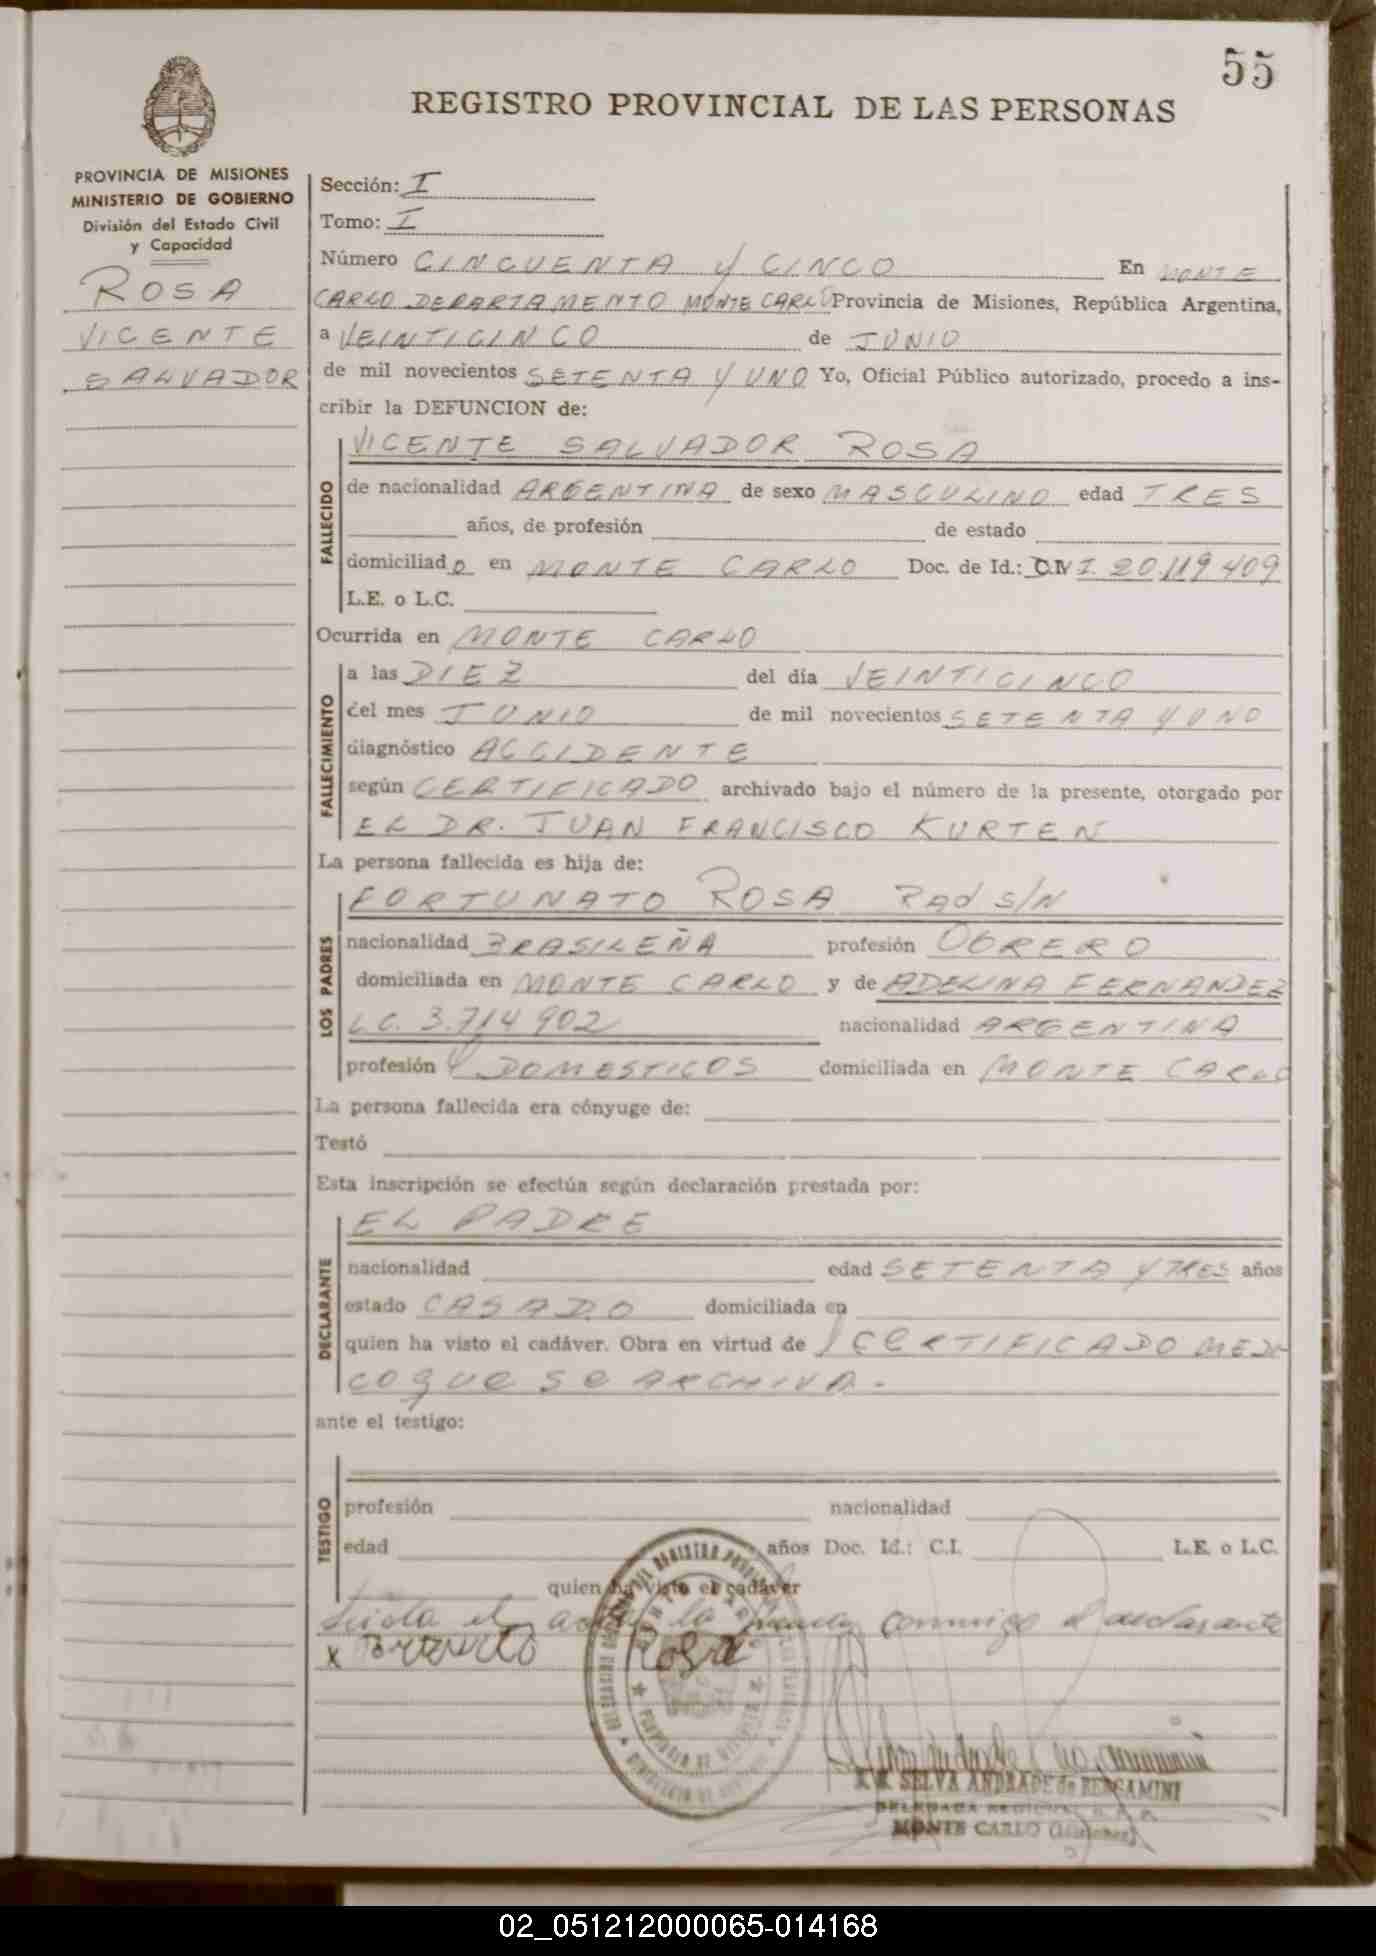 55
REGISTRO PROVINCIAL DE LAS PERSONAS
PROVINCIA DE MISIONES
MINISTERIO DE GOBIERNO
División del Estado Civil
y Capacidad
ROSA
VICENTE
SALVADOR
Sección: I
Tomo: I
Número CINCUENTA Y CINCO En MONTE
CARLO DEPARTAMENTO MONTE CARLO Provincia de Misiones, República Argentina,
a VEINTICINCO de JUNIO
de mil novecientos SETENTA Y UNO Yo, Oficial Público autorizado, procedo a ins-
cribir la DEFUNCION de:
FALLECIDO
VICENTE SALVADOR ROSA
de nacionalidad ARGENTINA de sexo MASCULINO edad TRES
años, de profesión de estado
domiciliado en MONTE CARLO Doc. de Id.: D.N.I. 20.119.409
L.E. o L.C.
Ocurrida en MONTE CARLO
FALLECIMIENTO
a las DIEZ del día VEINTICINCO
del mes JUNIO de mil novecientos SETENTA Y UNO
diagnóstico ACCIDENTE
según CERTIFICADO archivado bajo el número de la presente, otorgado por
EL DR. JUAN FRANCISCO KURTEN
La persona fallecida es hija de:
LOS PADRES
FORTUNATO ROSA S/N
nacionalidad BRASILEÑA profesión OBRERO
domiciliada en MONTE CARLO y de ADELINA FERNANDEZ
L.C. 3.714.902 nacionalidad ARGENTINA
profesión Q DOMESTICOS domiciliada en MONTE CARLO
La persona fallecida era cónyuge de:
Testó
Esta inscripción se efectúa según declaración prestada por:
DECLARANTE
EL PADRE
nacionalidad edad SETENTA Y TRES años
estado CASADO domiciliada en
quien ha visto el cadáver. Obra en virtud de CERTIFICADO MEDI
CO QUE SE ARCHIVA.-
ante el testigo:
TESTIGO
profesión nacionalidad
edad años Doc. Id.: C.I. L.E. o L.C.
quien ha visto el cadáver
Leída el acta la firma conmigo el declarante
x Rosa
SELVA ANDRADE de BERGAMINI
DELEGADA
MONTE CARLO (Misiones)
02_051212000065-014168